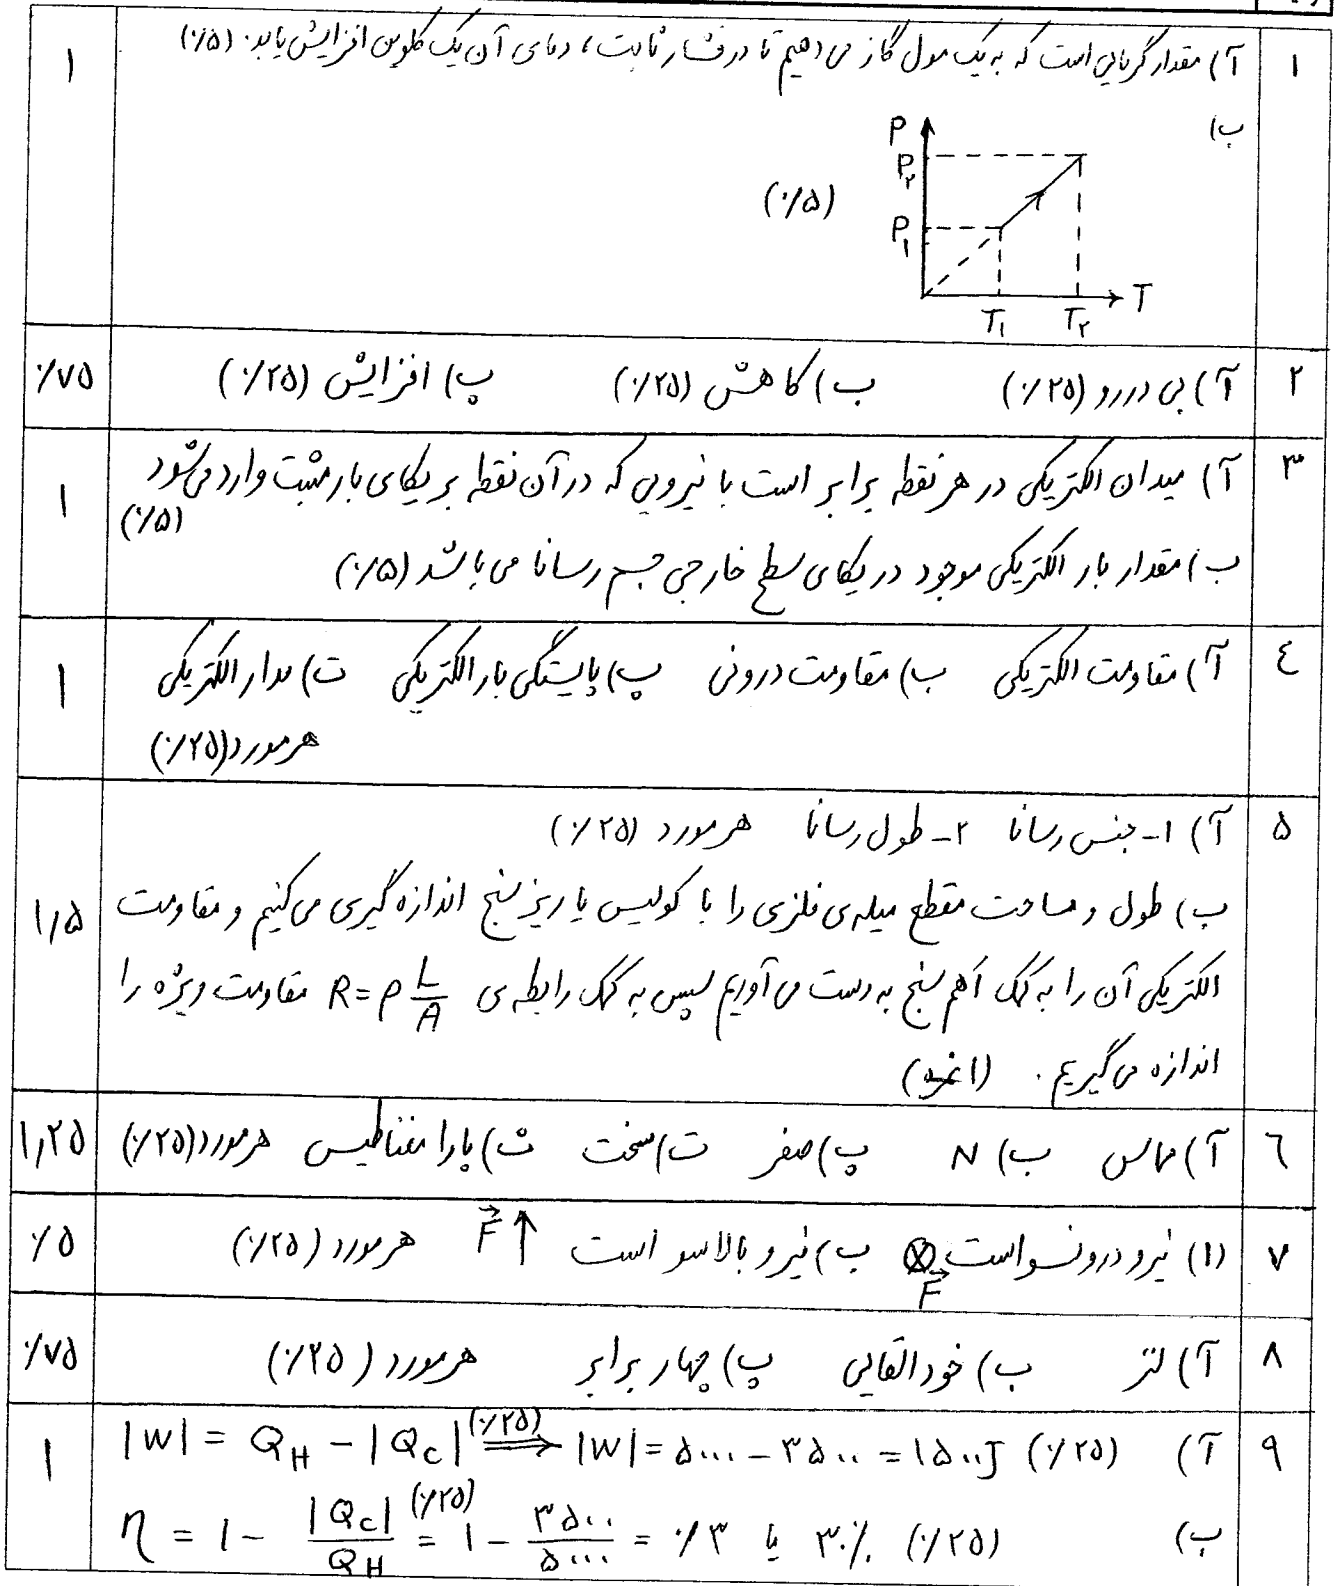 ۱ آ) مقدار گرمایی است که به یک مول گاز می دهیم تا در فشار ثابت، دمای آن یک کلوین افزایش یابد. (۰/۵) ۱
ب)
P
P۲
(۰/۵)
P۱
T
T۱ T۲
۲ آ) بی دررو (۰/۲۵) ب) کاهش (۰/۲۵) پ) افزایش (۰/۲۵) ۰/۷۵
۳ آ) میدان الکتریکی در هر نقطه برابر است با نیرویی که در آن نقطه بر یکای بار مثبت وارد می شود ۱
(۰/۵)
ب) مقدار بار الکتریکی موجود در یکای سطح خارجی جسم رسانا می باشد (۰/۵)
٤ آ) مقاومت الکتریکی ب) مقاومت درونی پ) پایستگی بار الکتریکی ت) مدار الکتریکی ۱
هر مورد (۰/۲۵)
۵ آ) ۱- جنس رسانا ۲- طول رسانا هر مورد (۰/۲۵)
ب) طول و مساحت مقطع میله ی فلزی را با کولیس یا ریزسنج اندازه گیری می کنیم و مقاومت ۱/۵
الکتریکی آن را به کمک اهم سنج به دست می آوریم سپس به کمک رابطه ی R = ρ L/A مقاومت ویژه را
اندازه می گیریم. (۱ نمره)
٦ آ) مماس ب) N پ) صفر ت) سخت ث) پارا مغناطیس هر مورد (۰/۲۵) ۱/۲۵
۷ (۱) نیرو درونسو است ⊗ F ب) نیرو بالاسو است F ↑ هر مورد (۰/۲۵) ۰/۵
۸ آ) لنز ب) خود القایی پ) چهار برابر هر مورد (۰/۲۵) ۰/۷۵
۹ آ) |W| = Q_H − |Q_C| (۰/۲۵) ⟹ |W| = ۵۰۰۰ − ۳۵۰۰ = ۱۵۰۰ J (۰/۲۵) ۱
ب) η = ۱ − |Q_C|/Q_H (۰/۲۵) = ۱ − ۳۵۰۰/۵۰۰۰ = ۰/۳ یا ۳۰٪ (۰/۲۵)